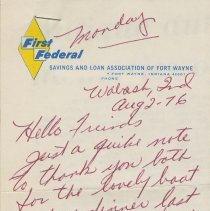 Monday
First
Federal
SAVINGS AND LOAN ASSOCIATION OF FORT WAYNE
FORT WAYNE, INDIANA
PHONE
Wabash, Ind
Aug 2-76
Hello Friends
Just a quike note
to thank you both
for the lovely boat
dinner last